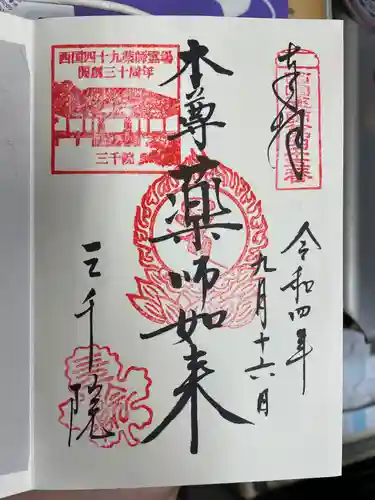 奉拝
令和四年
九月十六日
本尊薬師如来
西国四十九薬師霊場
開創三十周年
三千院
三千院